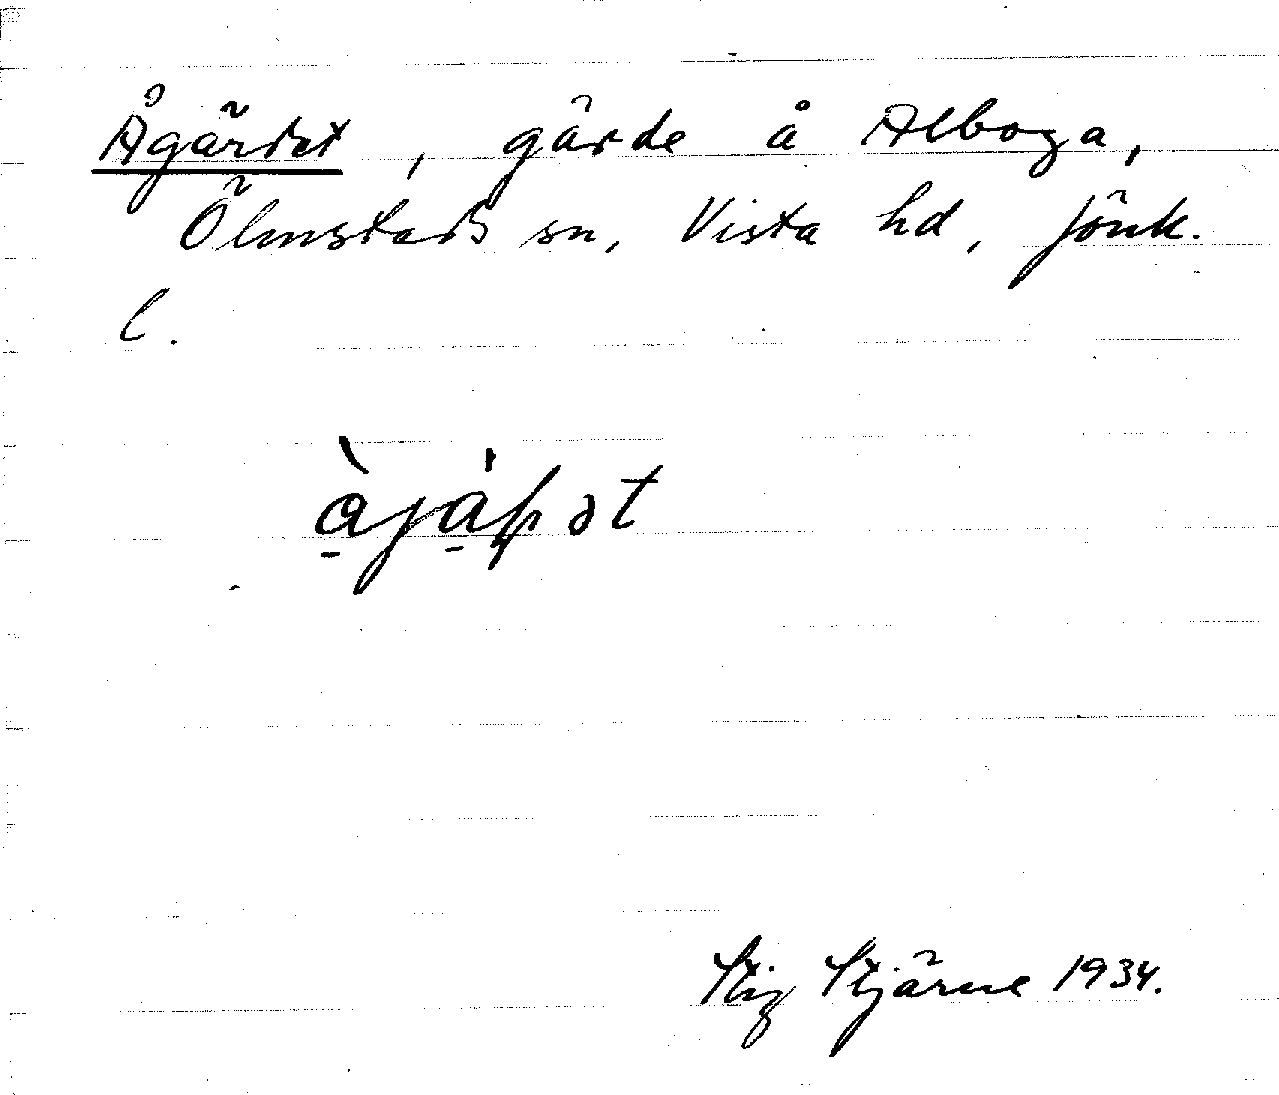 Ågärdet, gärde å Alboga,
Ölmstads sn, Vista hd, Jönk.
l.
Stig Stjärne 1934.